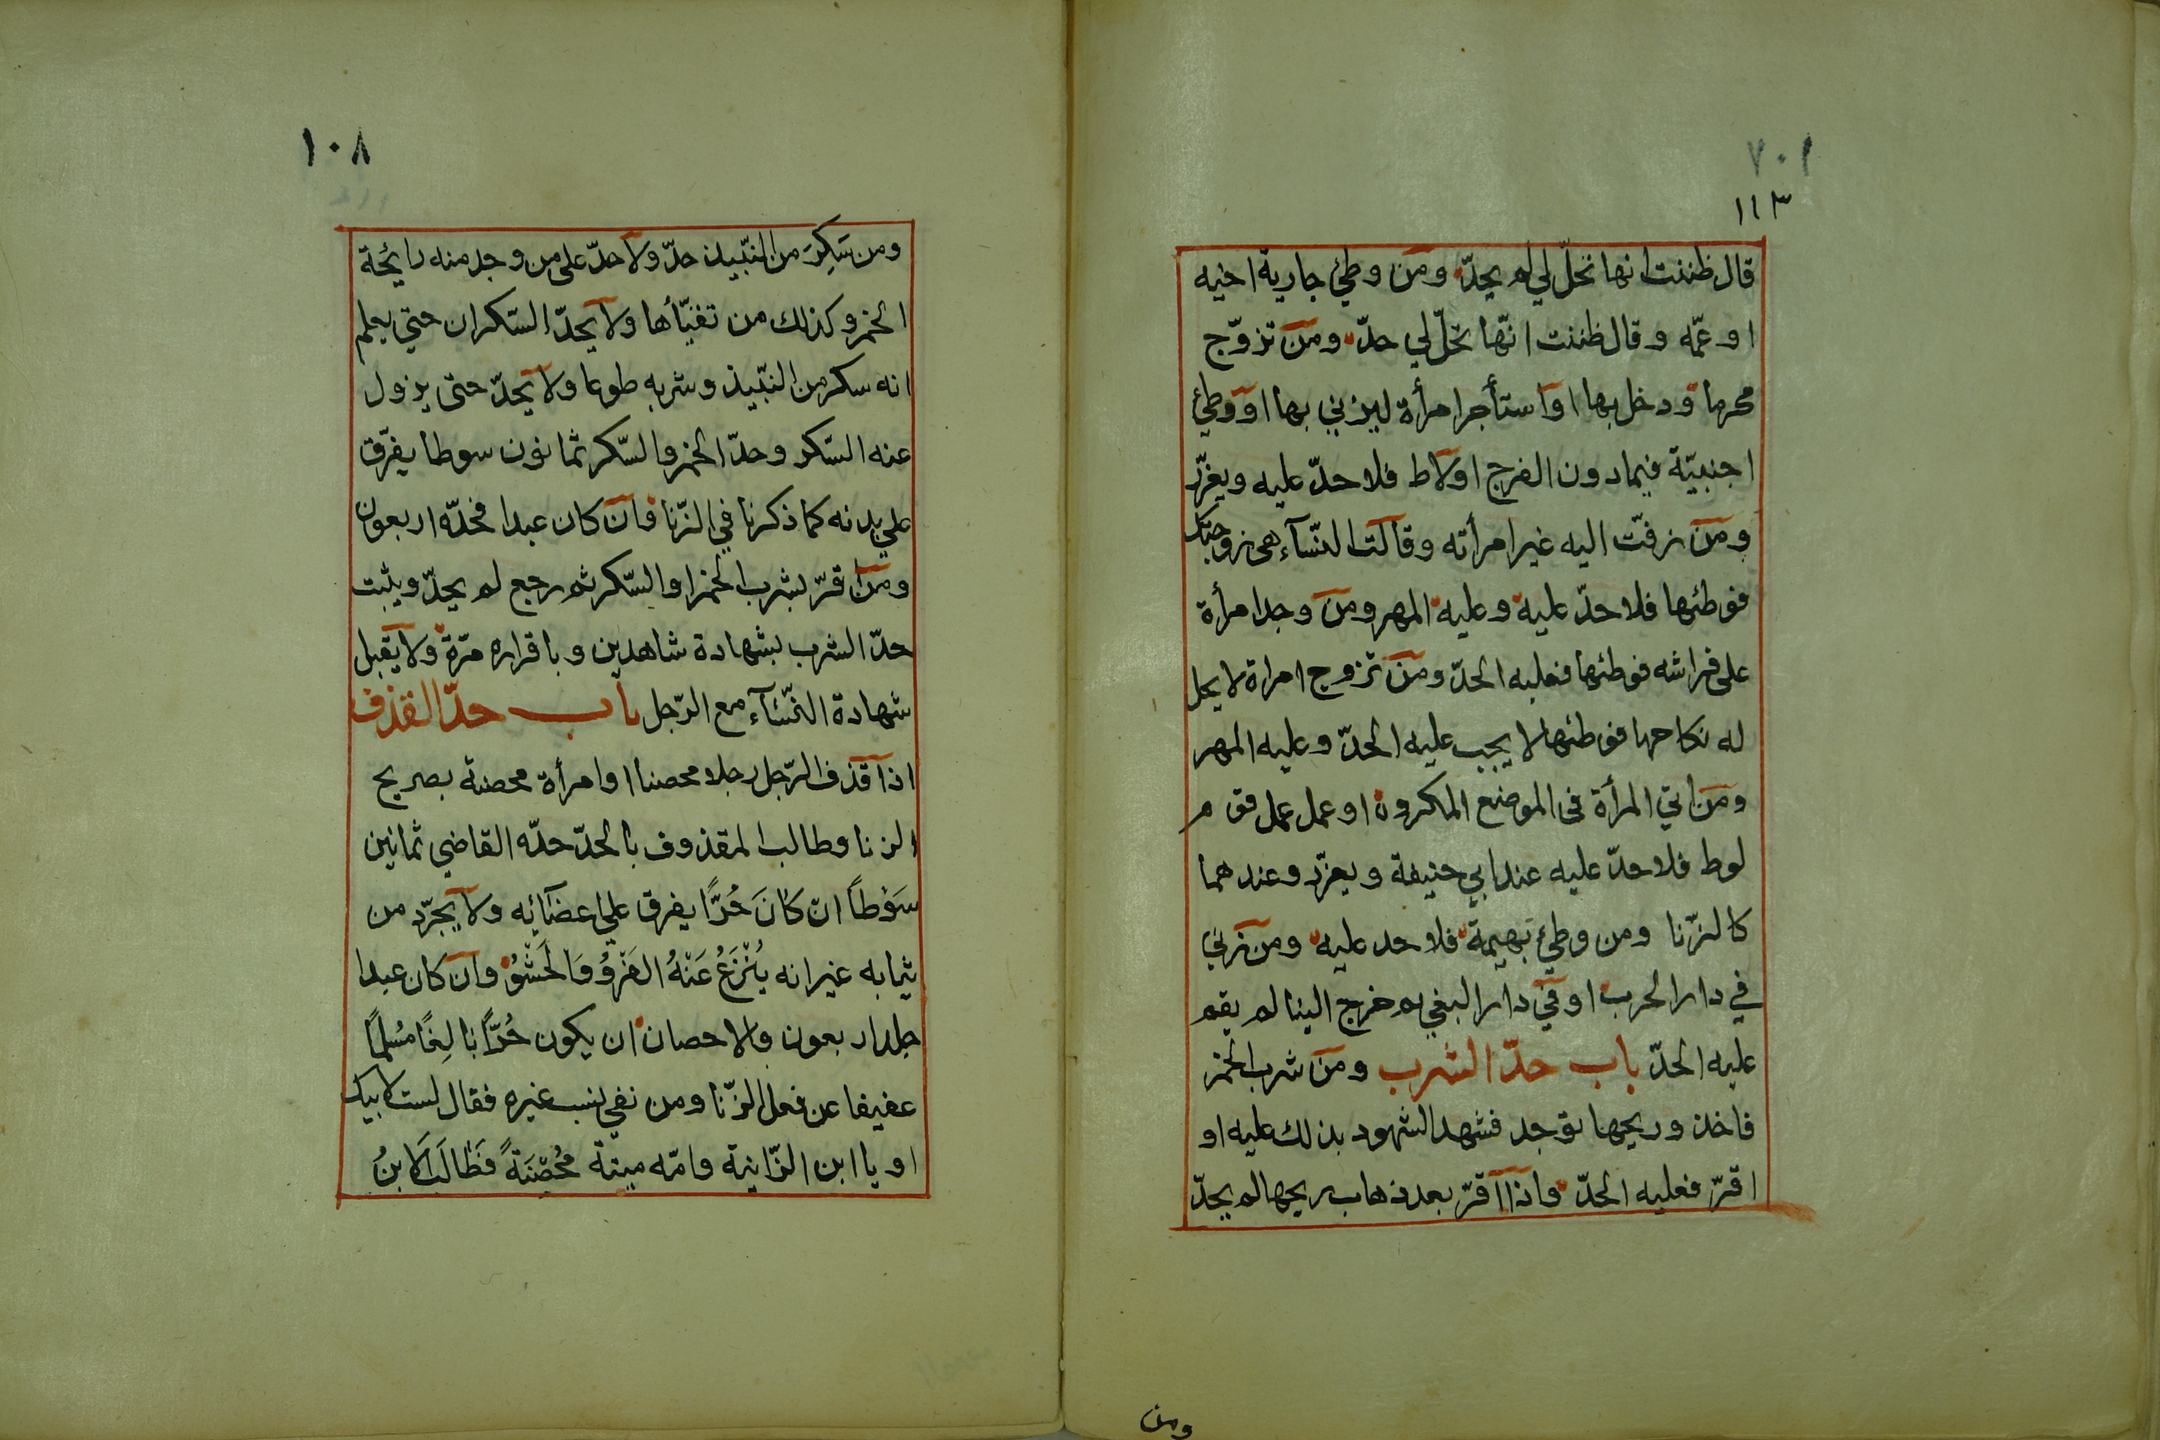 ١٠٧
١١٣
قال ظننت انها تحلّ لي لم يحدّ ومن وطئ جارية اخيه
او عمّه وقال ظننت انّها تحلّ لي حدّ ومن تزوّج
محرما ودخل بها او استأجر امرأة ليزني بها او وطئ
اجنبيّة فيما دون الفرج او لاط فلا حدّ عليه ويعزّر
ومن زفّت اليه غير امرأته وقالت النّسآء هى زوجتك
فوطئها فلا حدّ عليه وعليه المهر ومن وجد امرأة
على فراشه فوطئها فعليه الحدّ ومن تزوج امراة لا يحل
له نكاحها فوطئها لا يجب عليه الحدّ وعليه المهر
ومن اتي المرأة في الموضع المكروه او عمل عمل قوم
لوط فلا حدّ عليه عند ابي حنيفة ويعزّر وعندهما
كالزّنا ومن وطئ بهيمة فلا حد عليه ومن زني
في دار الحرب او في دار البغي ثم خرج الينا لم يقم
عليه الحدّ باب حدّ الشرب ومن شرب الخمر
فاخذ وريحها توجد فشهد الشهود بذلك عليه او
اقرّ فعليه الحدّ واذا اقرّ بعد ذهاب ريحها لم يحدّ
ومن
١٠٨
ومن سَكِرَ من النّبيذ حدّ ولا حدّ على من وجد منه رايحة
الخمر وكذلك من تقيّأها ولا يحدّ السّكران حتي يعلم
انه سكر من النّبيذ وشربه طوعا ولا يحدّ حتى يزول
عنه السّكر وحدّ الخمر والسّكر ثمانون سوطا يفرّق
علي بدنه كما ذكرنا في الزّنا فان كان عبدا فحدّه اربعون
ومن اقرّ بشرب الخمر او السّكر ثم رجع لم يحدّ ويثبت
حدّ الشرب بشهادة شاهدين وباقراره مرّة ولا يقبل
شهادة النّسآء مع الرّجل باب حدّ القذف
اذا قذف الرّجل رجلا محصنا او امرأة محصنة بصريح
الزنا وطالب المقذوف بالحدّ حدّه القاضي ثمانين
سَوْطاً ان كَانَ حُرًّا يفرق علي اعضائه ولا يجرّد من
ثيابه غير انه يُنْزَعُ عَنْهُ الفَرْوُ وَالحَشْوُ وان كان عبدا
جلد اربعون والاحصان ان يكون حُرًّا بَالِغًا مُسْلِمًا
عفيفا عن فعل الزّنا ومن نفي نسب غيره فقال لست لابيك
او يا ابن الزّانية وامّه ميتة مُحْصَنَةً فَطَالَبَ الابنُ